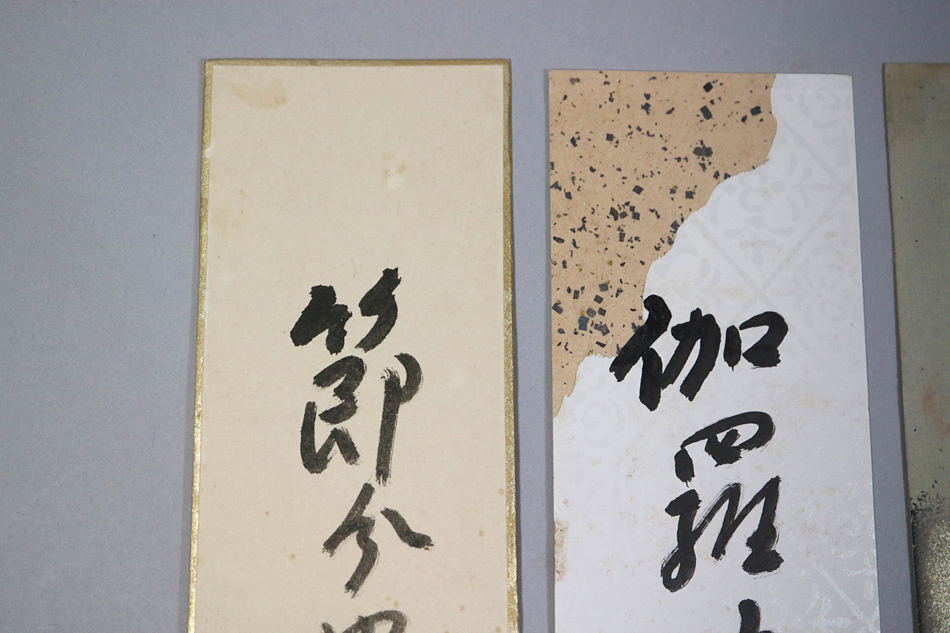 節分
伽羅